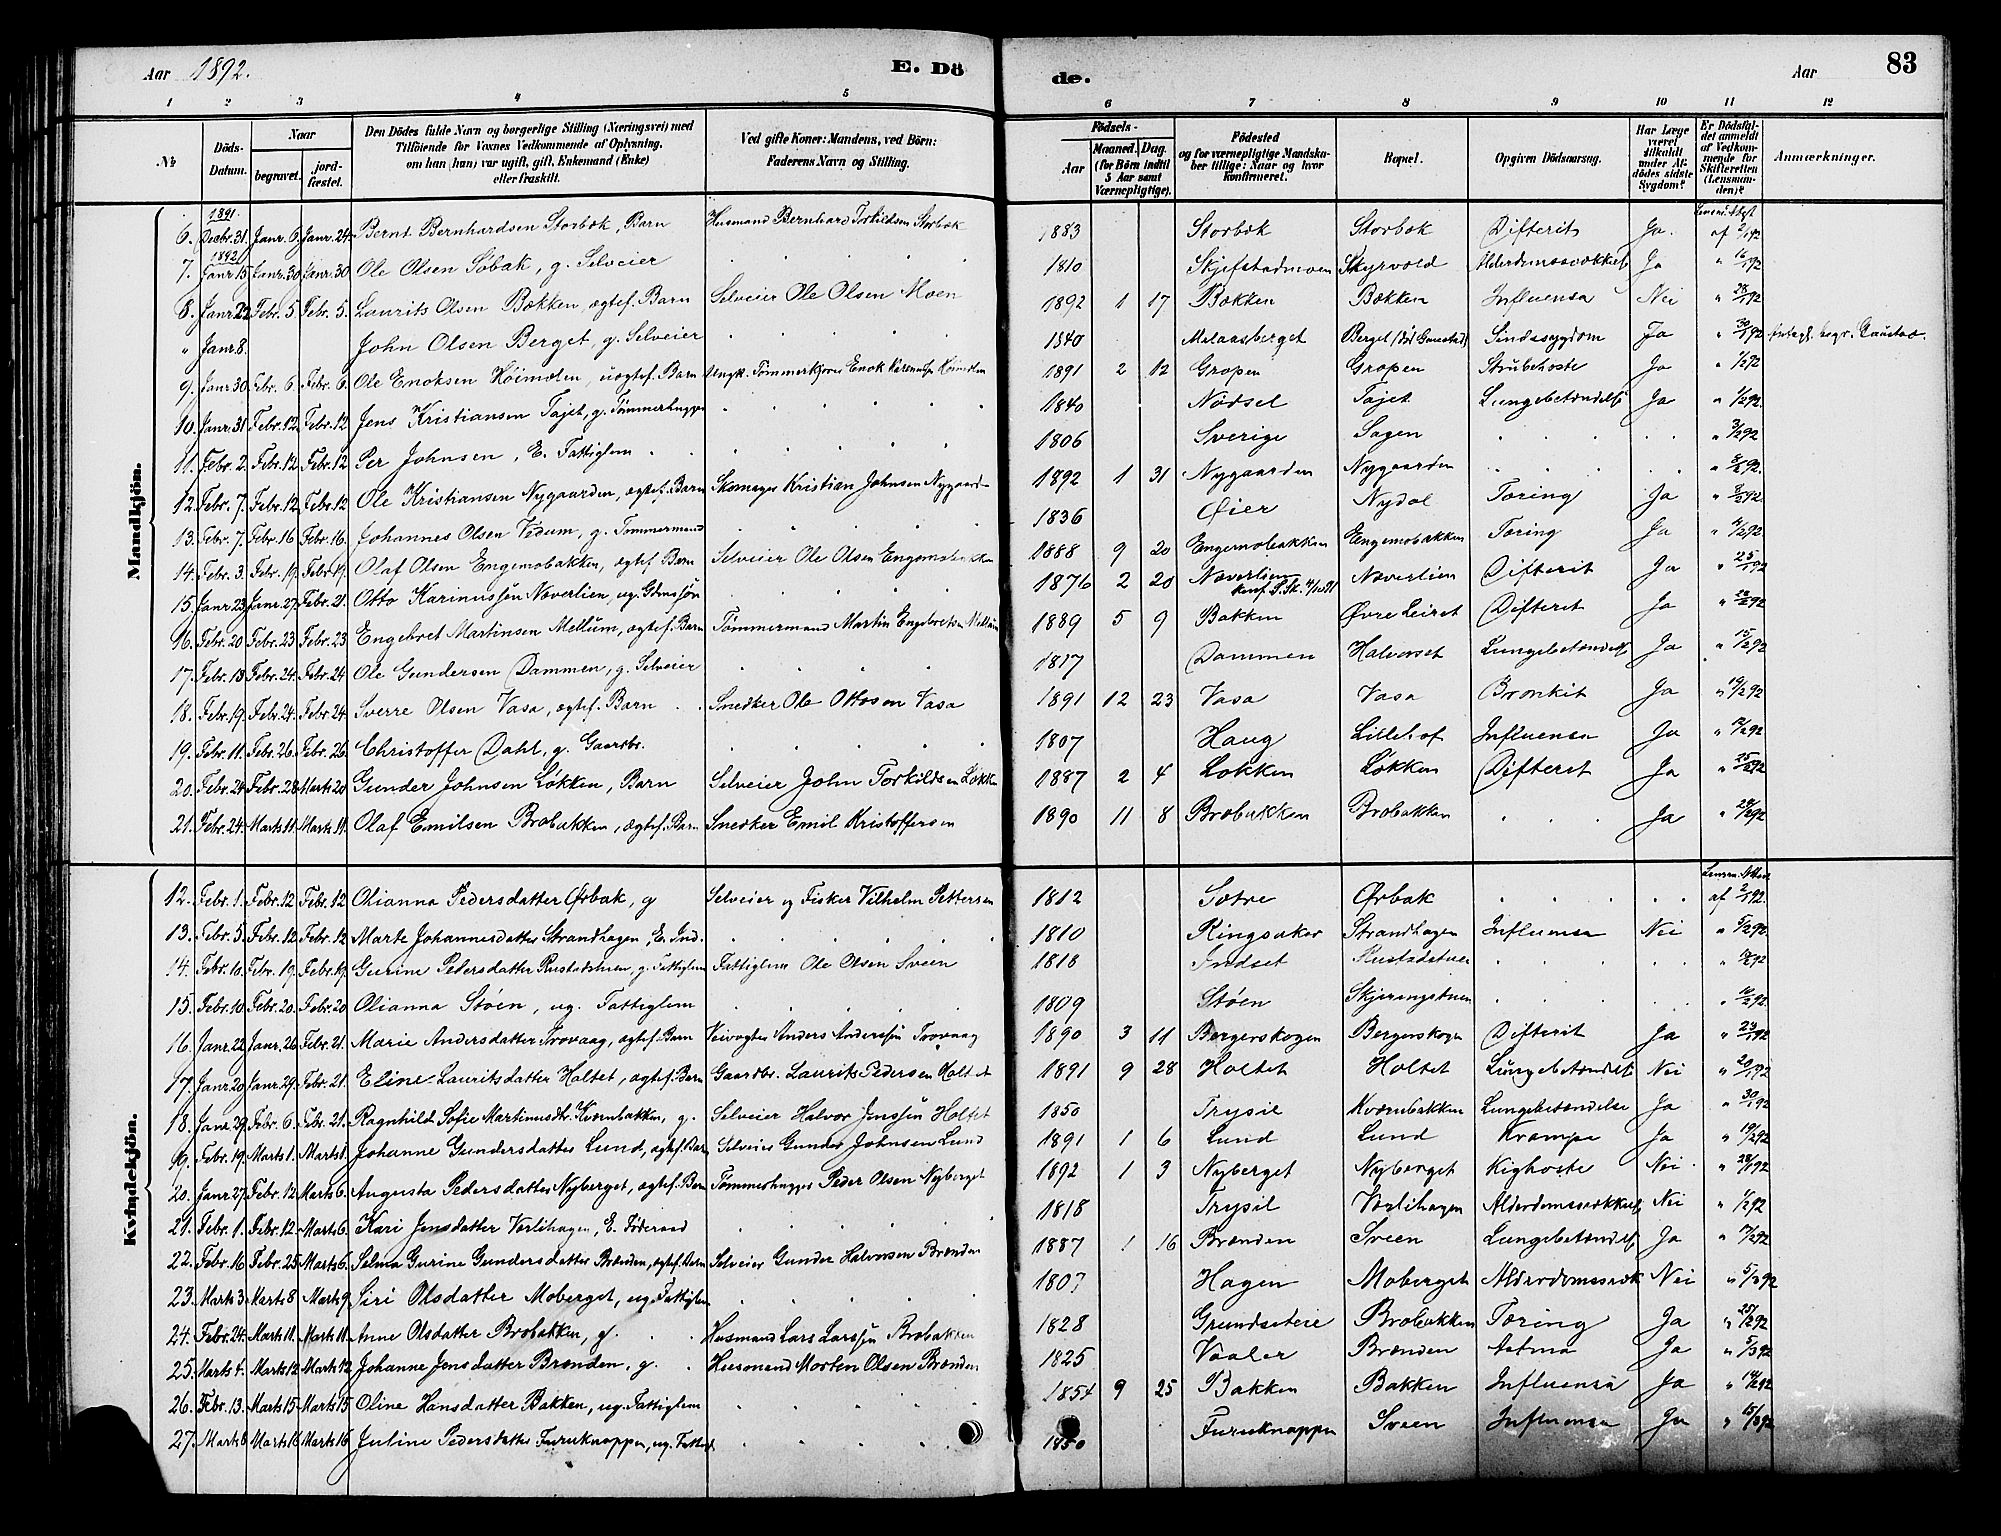 Aar 1892. E. Dö de. Aar 83
1 2 3 4 5 6 7 8 9 10 11 12
№ Döds-Datum. Naar begravet. jordfæstet. Den Dödes fulde Navn og borgerlige Stilling (Næringsvei) med Tilföiende for Voxnes Vedkommende af Oplysning, om han (hun) var ugift, gift, Enkemand (Enke) eller fraskilt. Ved gifte Koner: Mandens, ved Börn: Faderens Navn og Stilling. Födsels- Aar Maaned. Dag. (for Börn indtil 5 Aar samt Værnepligtige). Födested og for værnepligtige Mandskaber tillige: Naar og hvor konfirmeret. Bopæl. Opgiven Dödsaarsag. Har Læge været tilkaldt under Afdödes sidste Sygdom? Er Dödsfaldet anmeldt af Vedkommende for Skifteretten (Lensmanden)? Anmærkninger.
Mandkjön.
6. 1891 Decbr. 31. Janr. 6. Janr. 24. Bernt Bernhardsen Storbæk, Barn Husmand Bernhard Torkildsen Storbæk 1883 Storbæk Storbæk Difterit Ja. af 2/1 92
7. 1892 Janr. 15. Janr. 30 Janr. 30 Ole Olsen Søbak, g. Selveier 1810 Skjefstadmoen Skyrvold Alderdomssvækkelse Ja " 16/1 92
8. Janr. 22 Febr. 5. Febr. 5. Laurits Olsen Bakken, ægtef. Barn Selveier Ole Olsen Moen 1892 1 17 Bakken Bakken Influensa Nei " 28/1 92
" Janr. 8. John Olsen Berget, g. Selveier 1840 Melaasberget Berget Sindssygdom Ja " 30/1 92
9. Janr. 30. Febr. 6. Febr. 6. Ole Enoksen Höimolen, uægtef. Barn Ungk. Tømmerkjører Enok Höimolen 1891 2 12 Gropen Gropen Strubehoste Ja " 1/2 92
10. Janr. 31 Febr. 12. Febr. 12 Jens Kristiansen Tajet, g. Tømmerhugger 1840 Nødsel Tajet Lungebetændelse Ja " 1/2 92.
11. Febr. 2. Febr. 12. Febr. 12 Per Johnsen, E. Fattiglem 1806 Sverige Sagen " 3/2 92
12. Febr. 7. Febr. 12 Febr. 12 Ole Kristiansen Nygaarden, ægtef. Barn Skomager Kristian Johnsen Nygaard 1892 1 31 Nygaarden Nygaarden " 8/2 92.
13. Febr. 7. Febr. 16 Febr. 16. Johannes Olsen Vedum, g. Tømmermand 1836 Øier Nydal Tæring Ja " 8/2 92
14. Febr. 3. Febr. 19. Febr. 19. Olaf Olsen Engemobakken, ægtef. Barn Selveier Ole Olsen Engemobakken 1888 9 20 Engemobakken Engemobakken Tæring Ja " 4/2 92
15. Janr. 23. Janr. 27. Febr. 21. Otto Karinussøn Næverlien, ug. Gdmssøn 1876 2 20 Næverlien Næverlien Difterit Ja " 25/1 92
16. Febr. 20 Febr. 23 Febr. 23 Engebret Martinsen Mellum, ægtef. Barn Tømmermand Martin Engebretsen Mellum 1889 5 9 Bakken Øvre Leiret Difterit Ja 92
17. Febr. 13 Febr. 24. Febr. 24 Ole Gundersen Dammen, g. Selveier 1817 Dammen Halvorset Lungebetændelse Ja " 15/2 92
18. Febr. 19. Febr. 24. Febr. 24 Sverre Olsen Vasa, ægtef. Barn Snedker Ole Ottosen Vasa 1891 12 23 Vasa Vasa Bronkit Ja " 19/2 92
19. Febr. 11. Febr. 26. Febr. 26. Christoffer Dahl, g. Gaardbr. 1807 Haug Lillehof Influensa Ja " 12/2 92
20. Febr. 24. Febr. 28. Marts 20 Gunder Johnsen Løkken, Barn Selveier John Torkildsen Løkken 1887 2 4 Løkken Løkken Difterit Ja " 25/2 92
21. Febr. 24. Marts 11. Marts 11. Olaf Emilsen Brobakken, ægtef. Barn Snedker Emil Kristoffersen 1890 11 8 Brobakken Brobakken Ja 92
Kvindekjön.
12. Febr. 1. Febr. 12 Febr. 12 Olianna Pedersdatter Ørbak, g Selveier og Fisker Vilhelm Pettersen 1812 Sotre Ørbak af 2/2 92.
13. Febr. 5. Febr. 12 Febr. 12 Marte Johannesdatter Strandhagen, E. Ind. 1810 Ringsaker Strandhagen Influensa Nei " 5/2 92
14. Febr. 10. Febr. 19. Febr. 19. Gurine Pedersdatter Rustadstuen, g. Fattiglem Fattiglem Ole Olsen Sveen 1818 Indset Rustadstuen 92
15. Febr. 10 Febr. 20. Febr. 20 Olianna Støen, ug. Fattiglem 1809 Støen Skjæringstuen 92
16. Janr. 22 Janr. 26 Febr. 21. Marie Andersdatter Trovaag, ægtef. Barn Veivogter Anders Anderssøn Trovaag 1890 3 11 Bergerskogen Bergerskogen Difterit Ja " 23/1 92
17. Janr. 20 Janr. 29. Febr. 21. Eline Lauritsdatter Holtet, ægtef. Barn Gaardbr. Laurits Pedersen Holtet 1891 9 28 Holtet Holtet Lungebetændelse Nei " 20/1 92
18. Janr. 29. Febr. 6. Febr. 21. Ragnhild Sofie Martinusdtr. Kværnbakken, g. Selveier Halvor Jenssøn Holtet 1850 Trysil Kværnbakken Lungebetændelse Ja " 30/1 92
19. Febr. 19. Marts 1. Marts 1. Johanne Gundersdatter Lund, ægtef. Barn Selveier Gunder Johnsen Lund 1891 1 6 Lund Lund Krampe Ja " 19/2 92
20. Janr. 27. Febr. 12 Marts 6. Augusta Pedersdatter Nyberget, ægtef. Barn Tømmerhugger Peder Olsen Nyberget 1892 1 3 Nyberget Nyberget Kighoste Nei " 28/1 92
21. Febr. 1. Febr. 12 Marts 6. Kari Jensdatter Vorlihagen, E. Føderaad 1818 Trysil Vorlihagen Alderdomssvækkelse Nei " 1/2 92
22. Febr. 16 Febr. 25 Marts 6. Selma Gurine Gundersdatter Brænden, ægtef. Barn Selveier Gunder Halvorsen Brænden 1887 1 16 Brænden Sveen Lungebetændelse Ja " 17/2 92
23. Marts 3. Marts 8 Marts 9 Siri Olsdatter Moberget, ug. Fattiglem 1807 Hagen Moberget Alderdomssvæk Nei " 5/3 92
24. Febr. 24. Marts 11. Marts 11. Anne Olsdatter Brobakken, g. Husmand Lars Larssøn Brobakken 1828 Grundseteie Brobakken Tæring Ja " 25/2 92
25. Marts 4. Marts 12 Marts 12 Johanne Jensdatter Brænden, g. Husmand Morten Olsen Brænden 1825 Vaaler Brænden Astma Ja " 5/3 92
26. Febr. 13. Marts 15 Marts 15 Oline Hansdatter Bakken, ug. Fattiglem 1854 9 25 Bakken Bakken Influensa Ja 92
27. Marts 8 Marts 16 Marts 16 Juline Pedersdatter Furuknappen, ug. Fattigl. 1850 Furuknappen Sveen Influensa Ja " 15/3 92